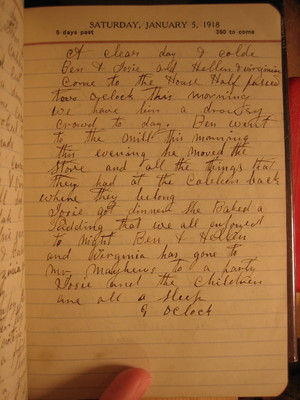 SATURDAY, JANUARY 5, 1918
5 days past 360 to come
A clear day & colde
Ben & Josie and Hellen & virginia
Come to the House Half passed
two oclock this morning
we have bin a drowsey
crowd to day. Ben went
to the mill this morning
this evening he moved the
Stove and all the things that
they had at the Cabben back
where they belong
Josie got dinner She baked a
Pudding that we all enjoyed
to night Ben & Hellen
and Verginia has gone to
Mr Mayhews to a party
Josie and the Children
are all a sleep
9 OClock